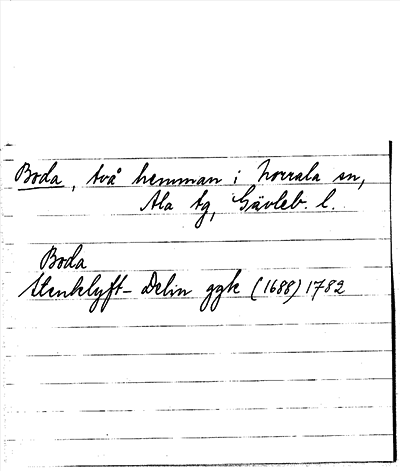 Boda, två hemman i Norrala sn,
Ala tg, Gävleb. l.
Boda
Stenklyft - Delin ggk (1688) 1782